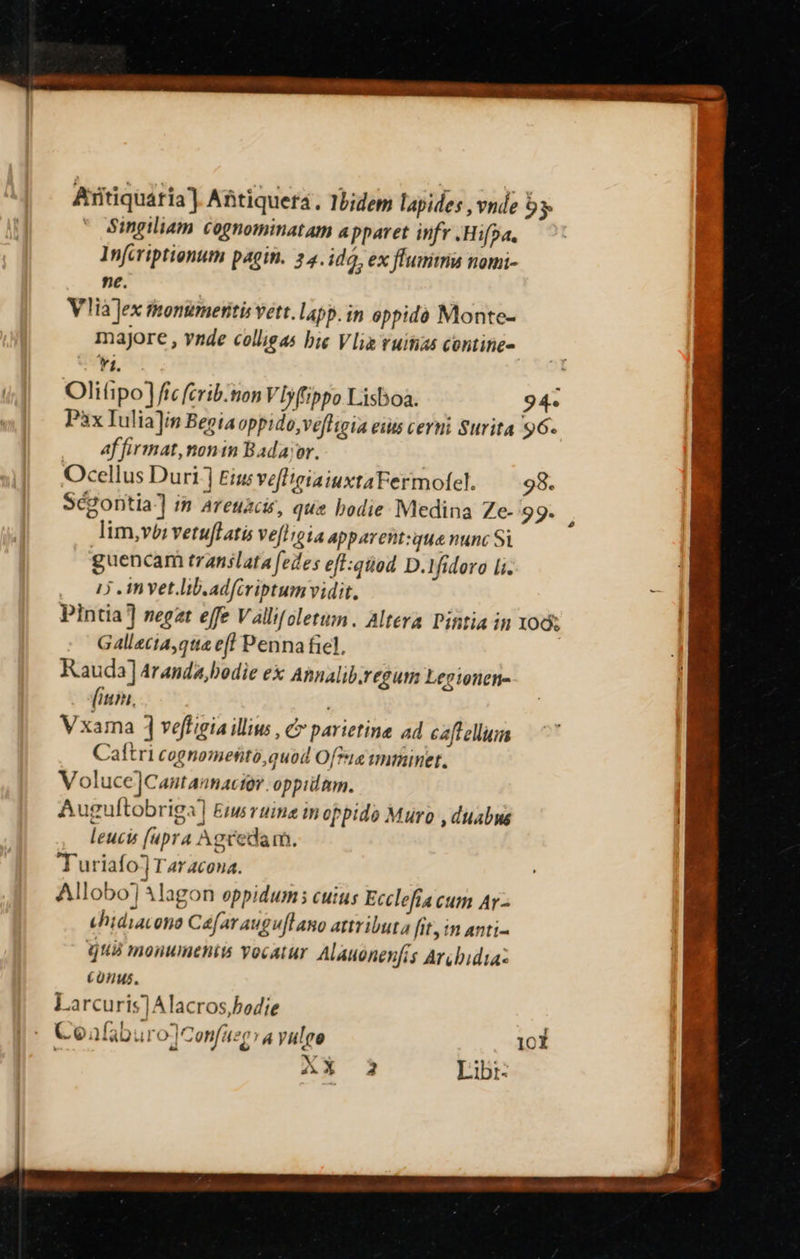 Antiquaria] Antiquera. Ibidem lapides, vnde 93
Singiliam cognominatam apparet infr. Hiſpa.
Inſcriptionum pagin. 34. idq, ex fluminis nomi-
ne.
Vlia]ex monumentis vett. lapp. in oppido Monte-
majore, vnde colligas hic Vliæ ruinas contine-
ri.
Oliſipo] ſic ſcrib. non Vlyſſippo Lisboa. 94.
Pax Iulia]in Begia oppido, veſtigia eius cerni Surita 96.
affirmat, non in Badajor.
Ocellus Duri] Eius veſtigia iuxta Fermoſel. 98.
Segontia] in Areuacis, quæ hodie Medina Ze- 99.
lim, vbi vetuſtatis veſtigia apparent: quæ nunc Si
guencam translata ſedes eſt: quod D. Iſidoro li.
15. in vet. lib. adſcriptum vidit.
Pintia] negat eſſe Valliſoletum. Altera Pintia in 100.
Gallæcia, quæ eſt Pennafiel.
Rauda] Aranda, hodie ex Annalib. regum Legionen-
ſium.
Vxama] veſtigia illius, & parietinæ ad caſtellum
Caſtri cognomento, quod Oſmæ imminet.
Voluce]Cantannacior. oppidum.
Auguſtobriga] Eius ruinæ in oppido Muro, duabus
leucis ſupra Agredam.
Turiaſo] Taracona.
Allobo] Alagon oppidum; cuius Eccleſia cum Ar-
chidiacono Cæſarauguſtano attributa ſit, in anti-
quis monumentis vocatur Alauonenſis Archidia-
conus.
Larcuris] Alacros, hodie
Conſaburo]Conſuegra vulgo 101
Xx 3 Libi-